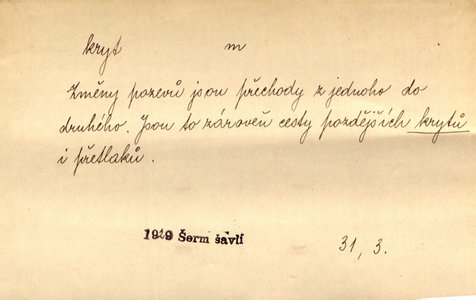 kryt m
Změny pozevů jsou přechody z jednoho do
druhého. Jsou to zároveň cesty pozdějších krytů
i přetlaků.
1929 Šerm šavlí 31, 3.